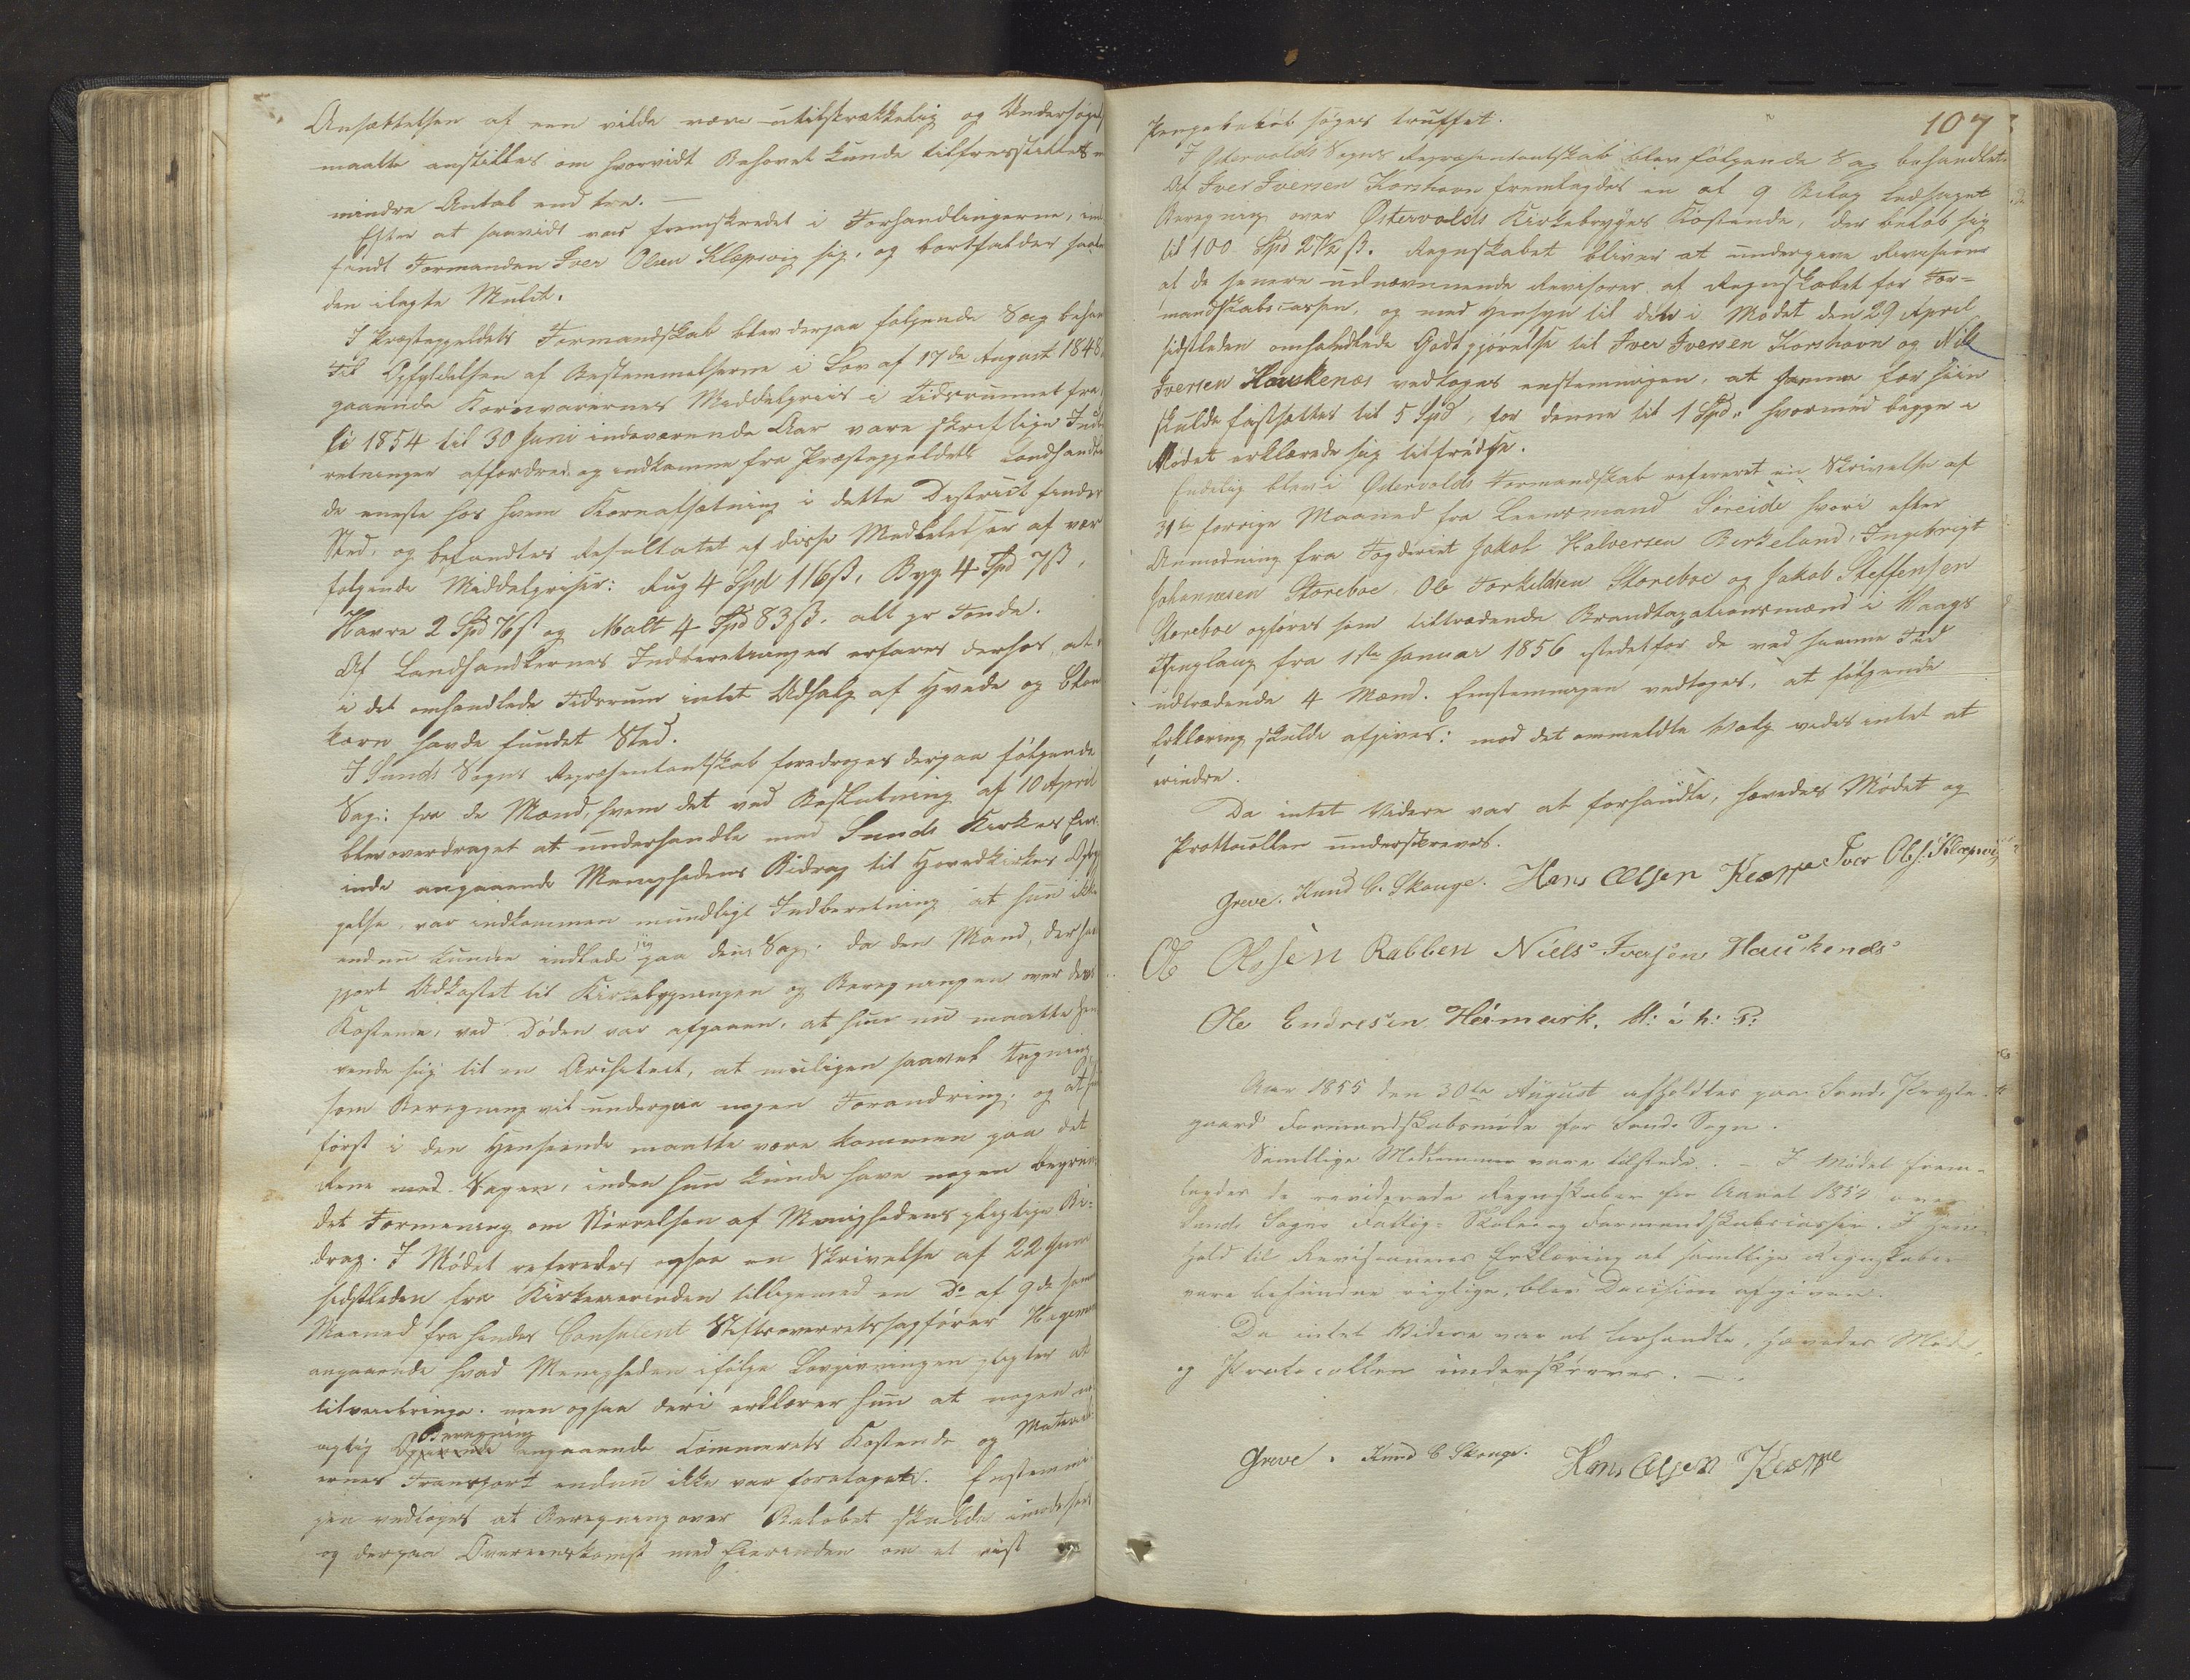 Ansættelsen af een vilde være utilstrækkelig og Undersøgelse
maatte anstilles om hvorvidt Behovet kunde tilfredsstilles
mindre Antal end tre. –
Efter at saavidt var fremskredet i Forhandlingerne, ind-
fandt Formanden Iver Olsen Klepsvig sig, og bortfalder saale
den ilagte Mulct.
I Præstegjeldets Formandskab blev derpaa følgende Sag behan
Til Opfyldelsen af Bestemmelserne i Lov af 17de August 1848
gaaende Kornvarernes Middelpriis i Tidsrummet fra
li 1854 til 30 Juni indeværende Aar vare skriftlige Indbe
retninger affordrede og indkomne fra Præstegjeldets Landhandle
de eneste hos hvem Kornafsætning i dette District finder
Sted, og befandtes Resultatet af disse Meddelelser at være
følgende Middelpriser: Rug 4 Spd 116 ß, Byg 4 Spd 7 ß,
Havre 2 Spd 76 ß og Malt 4 Spd 83 ß. alt pr Tønde.
Af Landhandlernes Indberetninger erfares derhos, at
i det omhandlede Tidsrum intet Udsalg af Hvede og Bland
korn havde fundet Sted.
I Sunds Sogns Repræsentantskab foredroges derpaa følgende
Sag: fra de Mænd, hvem det ved Beslutning af 10 April
blev overdraget at underhandle med Sunds Kirkes Eier-
inde angaaende Menighedens Bidrag til Hovedkirkes Opbyg
gelse, var indkommen mundtligt Indberetning at hun ikke
endnu kunde indlade sig paa den Sag, da den Mand, der hav
gjort Udkastet til Kirkebygningen og Beregningen over dens
Kostende, ved Døden var afgaaen, at hun nu maatte hen
vende sig til en Architect, at muligen saavel Tegning
som Beregning vil undergaa nogen Forandring, og at hun
først i den Henseende maatte være kommen paa det
Rene med Sagen, inden hun kunde have nogen begrun
det Formening om Størrelsen af Menighedens pligtige Bi-
drag. I Mødet refereredes ogsaa en Skrivelse af 22 Juni
sidstleden fra Kirkeeierinden tilligemed en Do af 9de samme
Maaned fra hendes Consulent Stiftsoverretssagfører Hagemann
angaaende hvad Menigheden ifølge Lovgivningen pligter at
tilveiebringe. men ogsaa deri erklærer hun at nogen nø
agtig Beregning angaaende Tømmerets Kostende og Material
ernes Transport endnu ikke var foretaget. Enstemmi-
gen vedtoges at Beregning over Beløbet skulde imødesees
og derpaa Overeenskomst med Eierinden om et vist
107
Pengebeløb søges truffet.
I Østervolds Sogns Repræsentantskab blev følgende Sag behandlet:
Af Iver Iversen Korshavn fremlagdes en af 9 Bilag ledsaget
Beregning over Østervolds Kirkebrygges Kostende, der beløb sig
til 100 Spd 27½ ß. Regnskabet bliver at undergive Revision
af de senere udnævnende Revisorer af Regnskabet for For-
mandskabscassen, og med Hensyn til den i Mødet den 29 April
sidstleden omhandlede Godtgjørelse til Iver Iversen Korshavn og Nils
Iversen Haukenæs vedtoges enstemmigen, at samme for hiin
skulde fastsættes til 5 Spd, for denne til 1 Spd, hvormed begge i
Mødet erklærede sig tilfredse.
Endelig blev i Østervolds Formandskab refereret en Skrivelse af
31te forrige Maaned fra Leensmand Søreide hvori efter
Anmodning fra Fogderiet Jakob Halversen Birkeland, Ingebrigt
Johannesen Storeboe, Ole Torkildsen Storeboe og Jakob Steffensen
Storeboe opføres som tiltrædende Brandtaxationsmænd i Vaags
Thinglaug fra 1ste Januar 1856 istedetfor de ved samme Tid
udtrædende 4 Mænd. Enstemmigen vedtoges, at følgende
Erklæring skulde afgives: mod det anmeldte Valg vides intet at
erindre.
Da intet Videre var at forhandle, hævedes Mødet og
Prottocollen underskreves.
Greve. Knud C. Skauge. Hans Olsen Kleppe Iver Ols: Klepsvig
Ole Olssen Rabben Niels Iversen Haukenæs
Ole Endresen Heimark. M: i h: P:
Aar 1855 den 30te August afholdtes paa Sunds Præste-
gaard Formandskabsmøde for Sunds Sogn.
Samtlige Medlemmer vare tilstede. – I Mødet frem-
lagdes de reviderede Regnskaber for Aaret 1854 over
Sunds Sogns Fattig- Skole og Formandskabscasser. I Hen-
hold til Revisorernes Erklæring at samtlige Regnskaber
vare befundne rigtige, blev Decision afgiven.
Da intet Videre var at forhandle, hævedes Mødet,
og Protocollen underskreves. –
Greve. Knud C Skauge. Hans Olsen Kleppe